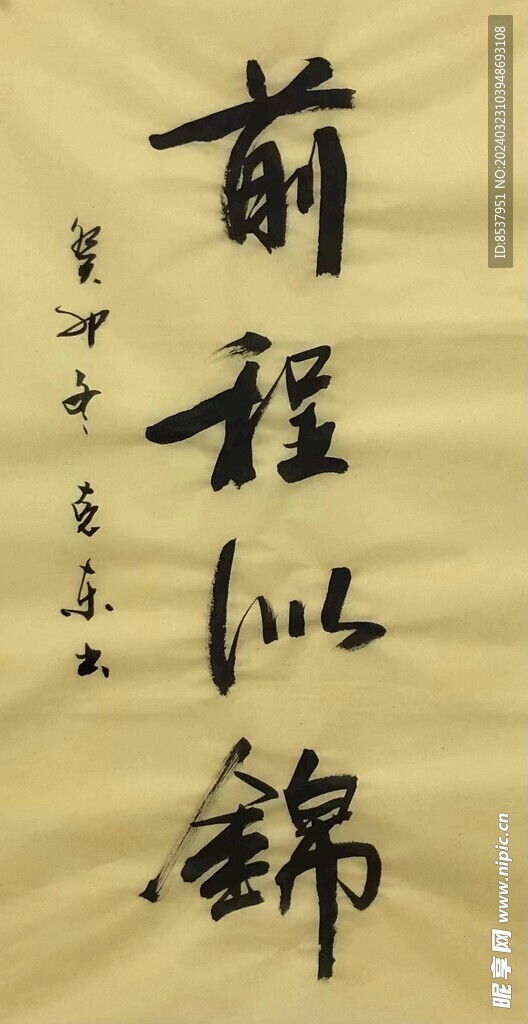 前程似錦
癸卯冬 克东书
ID:8537951 NO:20240323103948693108
昵享网 www.nipic.cn